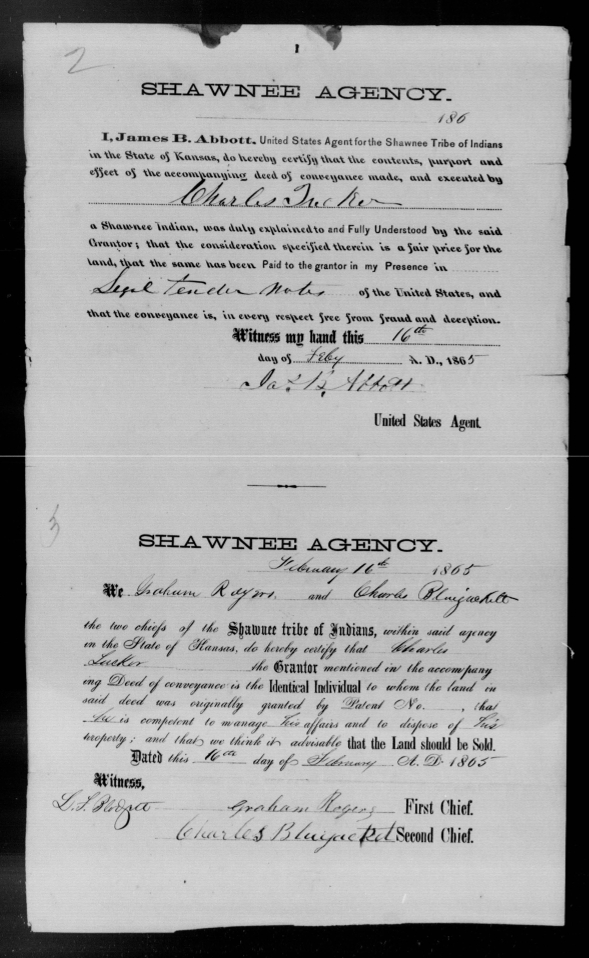 2
SHAWNEE AGENCY.
186
I, James B. Abbott, United States Agent for the Shawnee Tribe of Indians
in the State of Kansas, do hereby certify that the contents, purport and
effect of the accompanying deed of conveyance made, and executed by
Charles Tucker
a Shawnee Indian, was duly explained to and Fully Understood by the said
Grantor; that the consideration specified therein is a fair price for the
land, that the same has been Paid to the grantor in my Presence in
Legal tender notes of the United States, and
that the conveyance is, in every respect free from fraud and deception.
Witness my hand this 16th
day of Feby A. D., 1865
Jas. B. Abbott
United States Agent.
3
SHAWNEE AGENCY.
February 16th 1865
We Graham Rogers. and Charles Bluejackett
the two chiefs of the Shawnee tribe of Indians, within said agency
in the State of Kansas, do hereby certify that Charles
Tucker the Grantor mentioned in the accompany
ing Deed of conveyance is the Identical Individual to whom the land in
said deed was originally granted by Patent No. , that
he is competent to manage his affairs and to dispose of his
property; and that we think it advisable that the Land should be Sold.
Dated this 16th day of February A. D. 1865
Witness,
Graham Rogers First Chief.
Charles Bluejacket Second Chief.